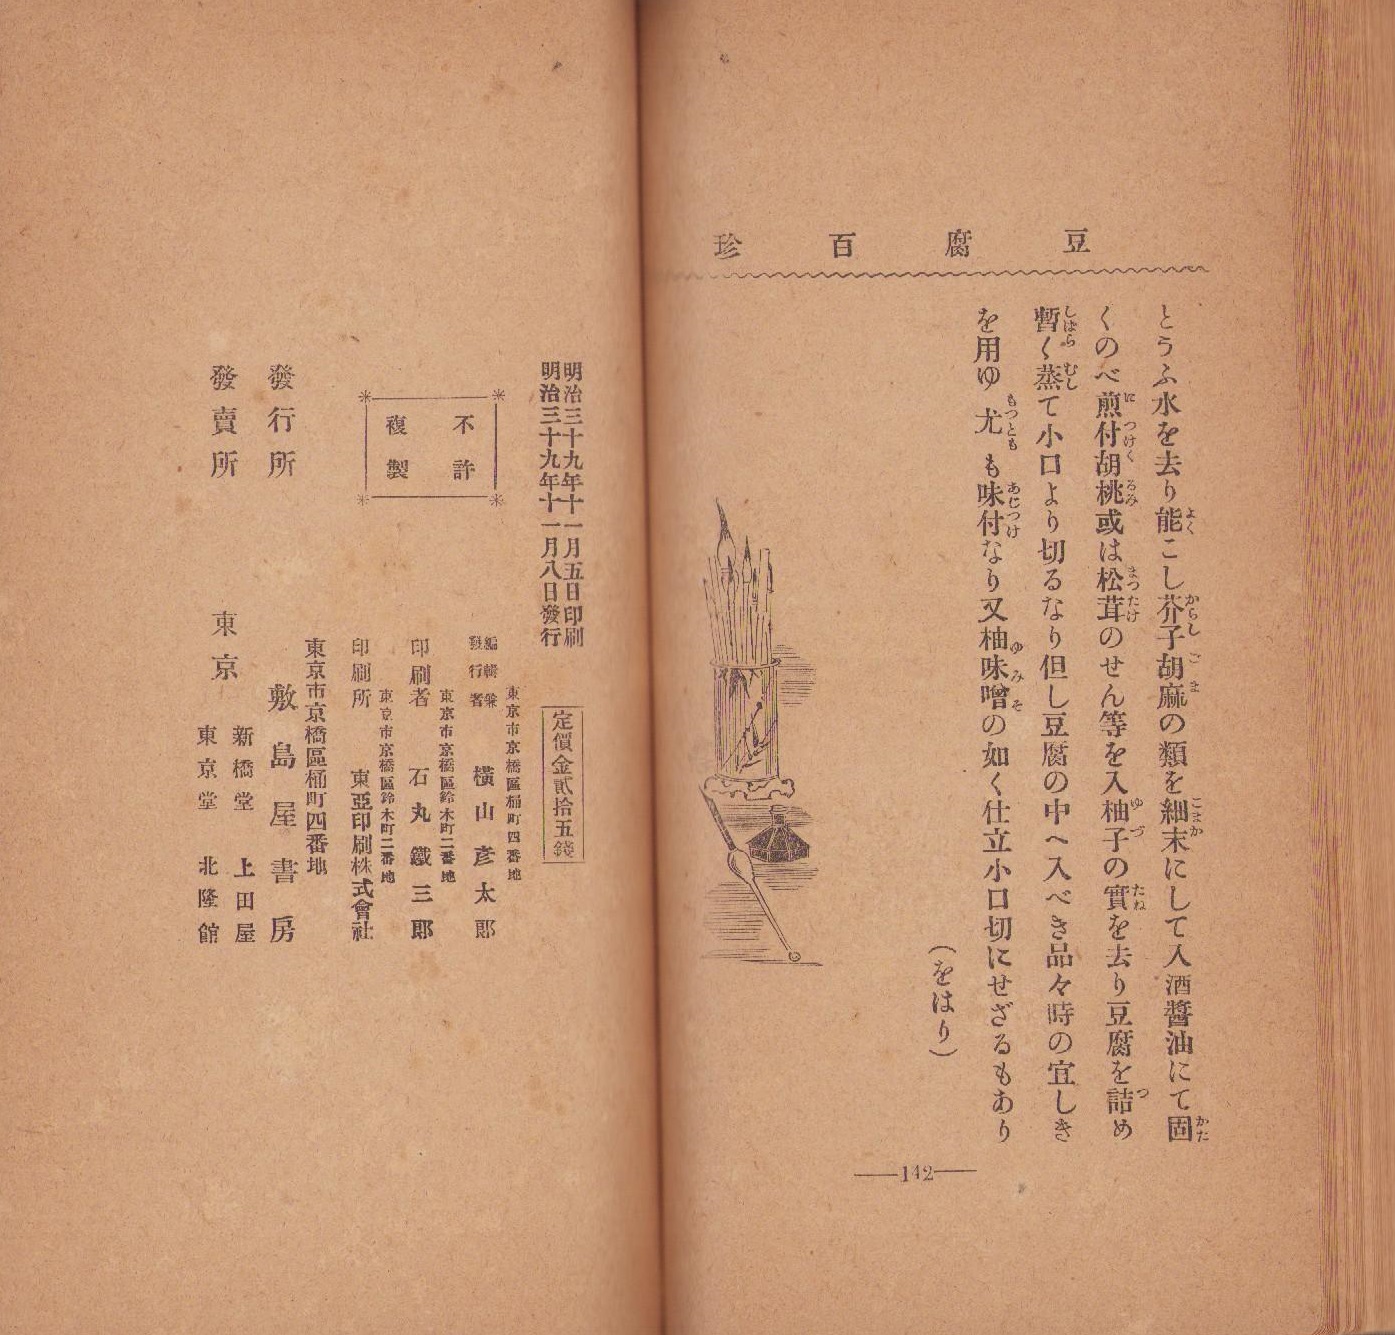 豆腐百珍
とうふ水を去り能こし芥子胡麻の類を細末にして入酒醬油にて固
くのべ煎付胡桃或は松茸のせん等を入柚子の實を去り豆腐を詰め
暫く蒸て小口より切るなり但し豆腐の中へ入べき品々時の宜しき
を用ゆ尤も味付なり又柚味噌の如く仕立小口切にせざるもあり
(をはり)
142
明治三十九年十一月五日印刷
明治三十九年十一月八日發行
定價金貳拾五錢
不許
複製
東京市京橋區桶町四番地
編輯兼
發行者
橫山彥太郎
東京市京橋區鈴木町二番地
印刷者 石丸鐵三郎
東京市京橋區鈴木町二番地
印刷所 東亞印刷株式會社
東京市京橋區桶町四番地
發行所 敷島屋書房
發賣所 東京
新橋堂 上田屋
東京堂 北隆館